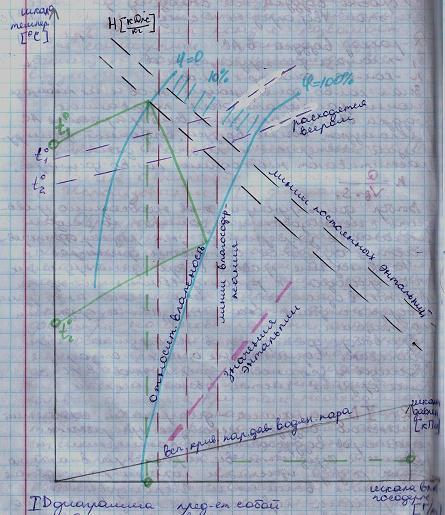 шкала
темпер
[°C]
H [кДж/кг]
φ=0
10%
φ=100%
расходятся
веером
t₁°
t₁°
t₂°
t₂°
линии постоянных энтальпий
линии влагосодер-
жания
относит. влажность
значения
энтальпии
всп. крив. пар. дав. водян. пара
шкала
давл
[кПа
шкала вла
госодерж
ID диаграмма пред-ет собой